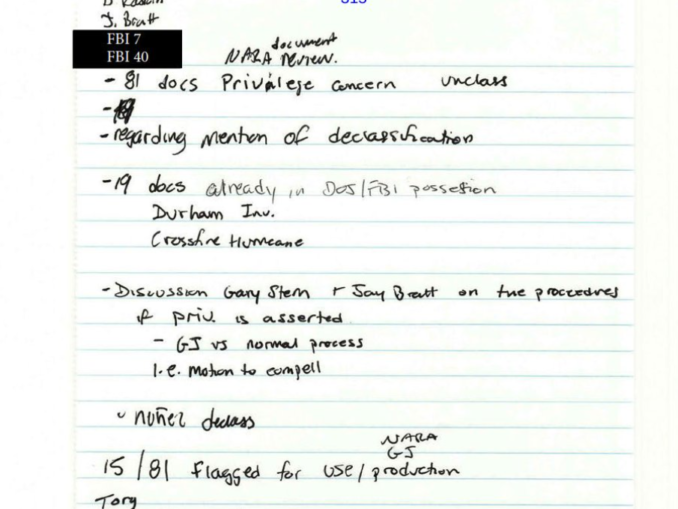 J. Bratt
FBI 7
FBI 40
document
NARA review.
- 81 docs Privilege concern unclass
-
- regarding mention of declassification
- 19 docs already in DOJ/FBI possession
Durham Inv.
Crossfire Hurricane
- Discussion Gary Stern + Jay Bratt on the procedures
if priv. is asserted
- GJ vs normal process
I.e. Motion to compell
nuñez declass
NARA
GJ
15/81 flagged for use/production